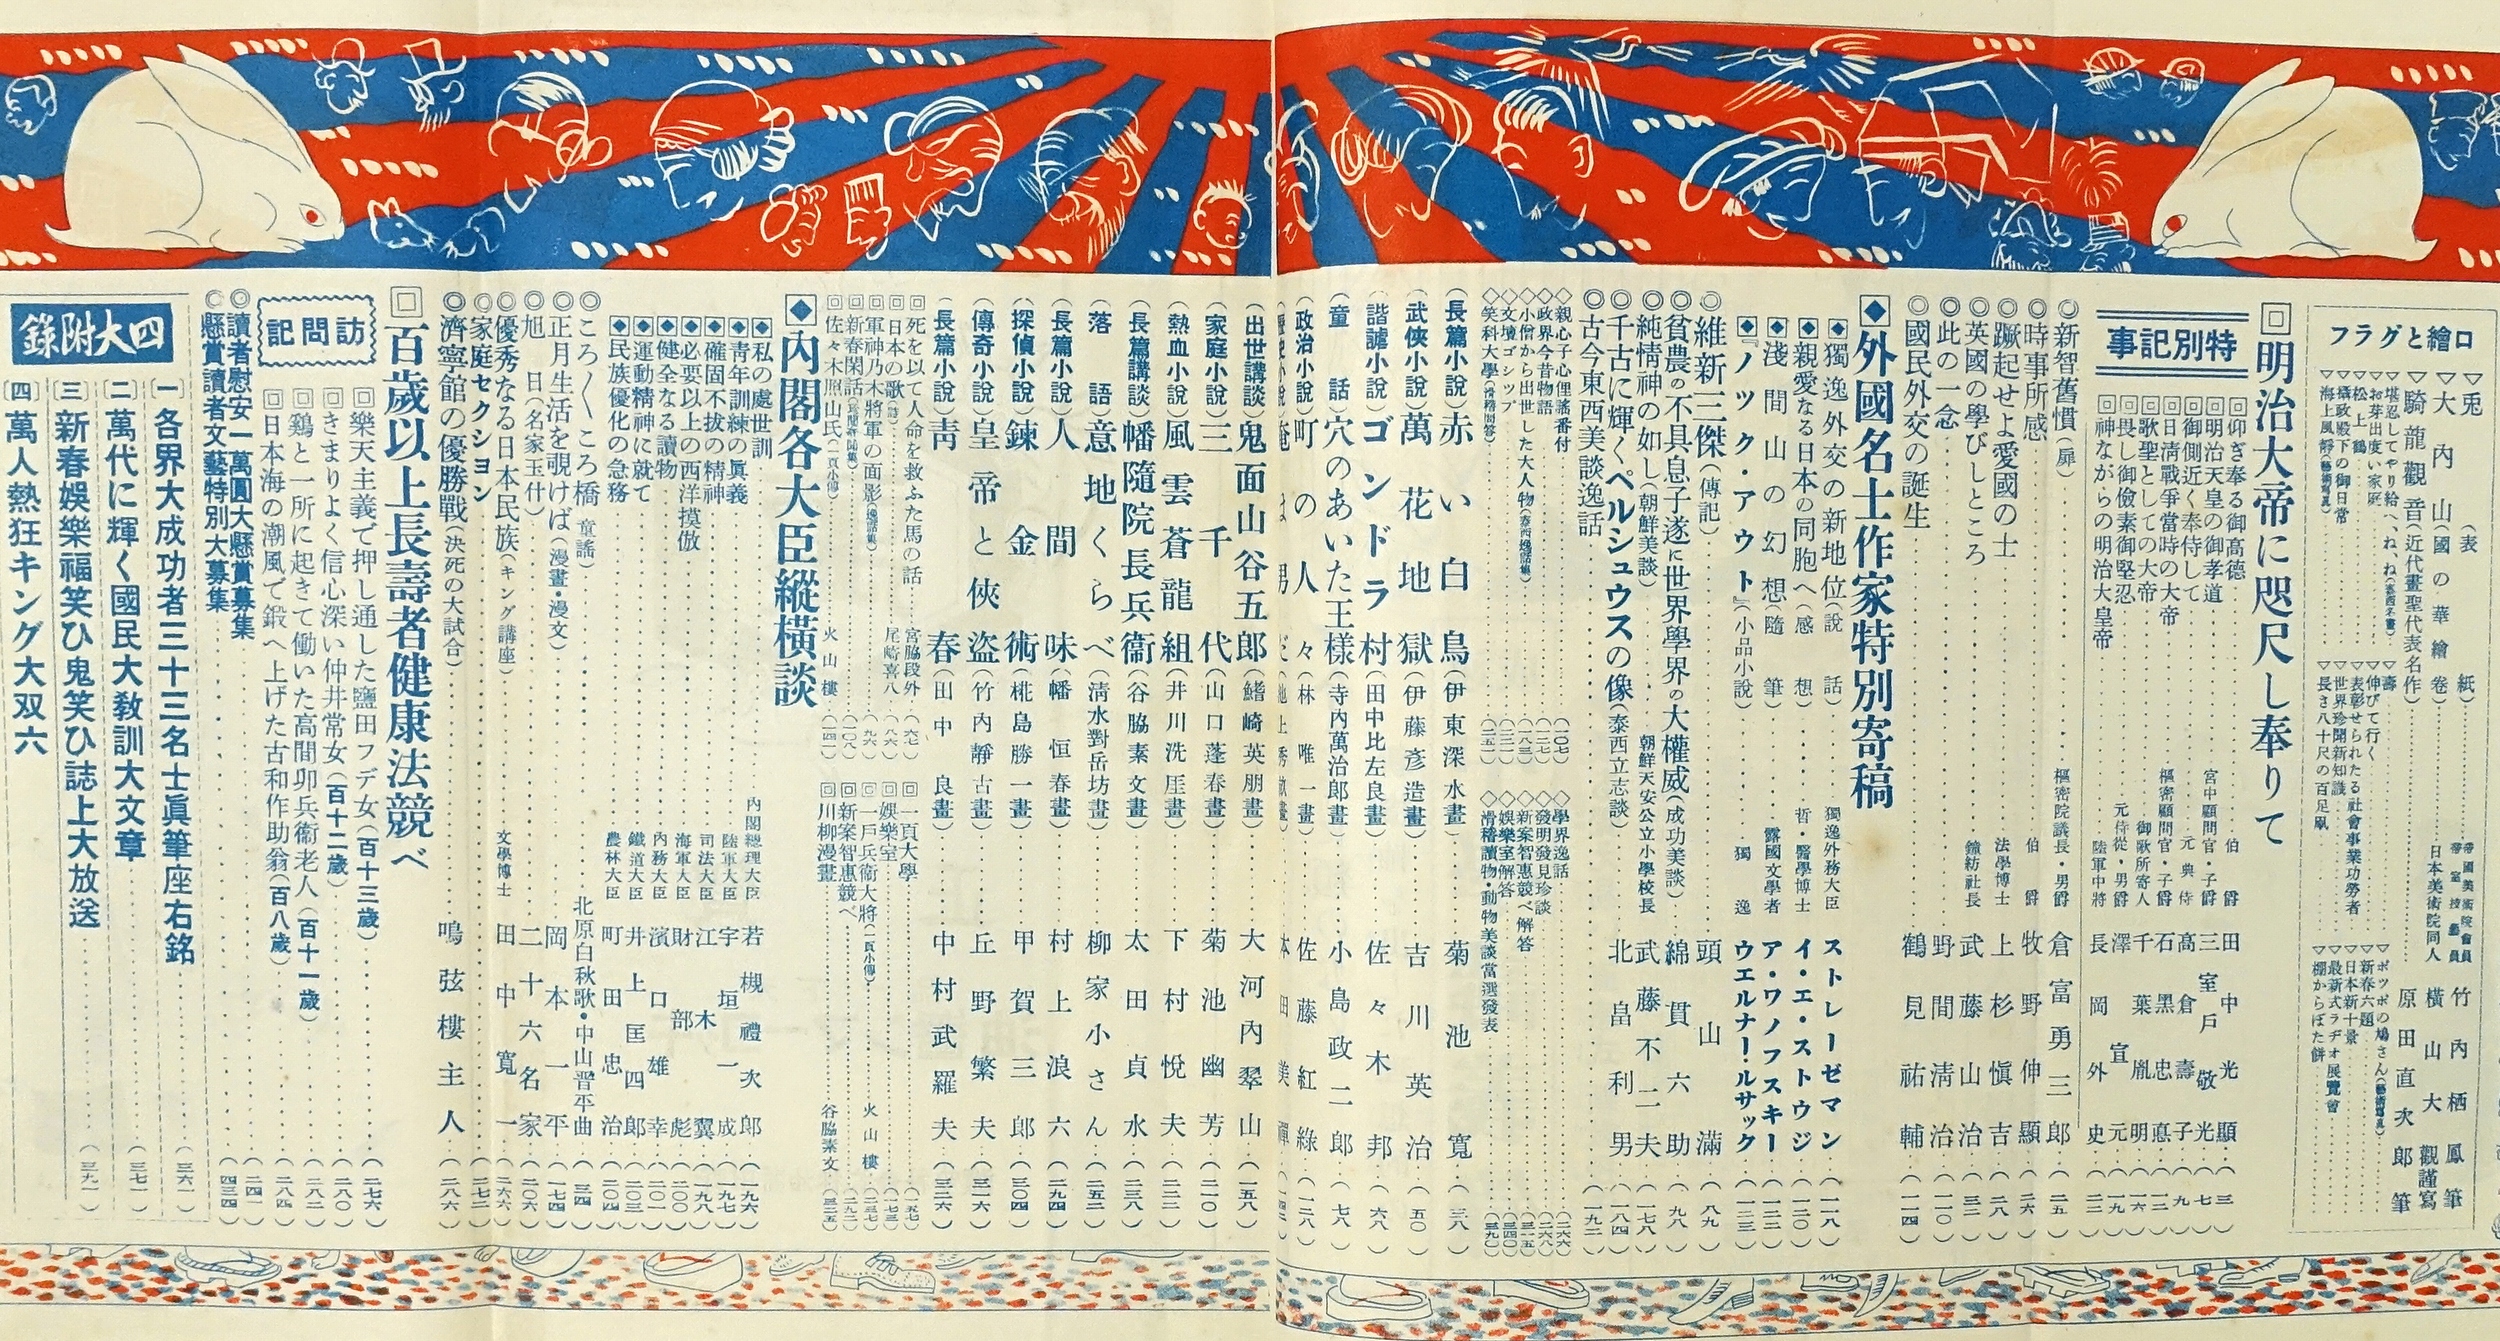 口繪とグラフ
▽兎(表紙)
竹内栖鳳筆
▽大内山(國の華繪卷)
日本美術院同人 横山大觀謹寫
▽騎龍觀音(近代畫聖代表名作)
原田直次郎筆
▽お芽出度い家庭
▽松上鶴
▽攝政殿下の御日常
▽壽
▽伸びて行く
▽表彰せられたる社會事業功勞者
▽世界珍聞新知識
▽長さ八十尺の百足凧
▽新春六題
▽日本新十景
▽最新式ラヂオ展覽會
▽棚からぼた餅
明治大帝に咫尺し奉りて
特別記事
仰ぎ奉る御高德 伯爵 田中光顯(三)
明治天皇の御孝道 宮中顧問官・子爵 三室戸敬光(七)
御側近く奉侍して 元典侍 高倉壽子(九)
日淸戰爭當時の大帝 樞密顧問官・子爵 石黑忠悳(一二)
歌聖としての大帝 御歌所寄人 千葉胤明(一六)
畏し御儉素御堅忍 元侍從・男爵 澤宣元(一九)
神ながらの明治大皇帝 陸軍中將 長岡外史(二二)
◎新智舊慣(扉) 樞密院議長・男爵 倉富勇三郎(二五)
◎時事所感 伯爵 牧野伸顯(二六)
◎蹶起せよ愛國の士 法學博士 上杉愼吉(二八)
◎英國の學びしところ 鐘紡社長 武藤山治(三二)
◎此の一念 野間淸治(一一〇)
◎國民外交の誕生 鶴見祐輔(一一四)
外國名士作家特別寄稿
獨逸外交の新地位(說話) 獨逸外務大臣 ストレーゼマン(一一八)
親愛なる日本の同胞へ(感想) 哲・醫學博士 イ・エ・ストウジ(一二〇)
淺間山の幻想(隨筆) 露國文學者 ア・ワノフスキー(一二二)
『ノック・アウト』(小品小說) 獨逸 ウエルナー・ルサック(一二三)
◎維新三傑(傳記) 頭山滿(八九)
◎貧農の不具息子遂に世界學界の大權威(成功美談) 綿貫六助(九八)
◎純情神の如し(朝鮮美談) 朝鮮天安公立小學校長 武藤不二夫(一七八)
◎千古に輝くペルシュウスの像(泰西立志談) 北畠利男(一八四)
◎古今東西美談逸話(一九二)
◇親心子心俚謠番付(一〇七)
◇政界今昔物語
◇小僧から出世した大人物(泰西逸話集)
◇文壇ゴシップ
◇笑科大學(滑稽問答)
◇學界逸話
◇發明發見珍談
◇新案智惠競べ解答
◇娛樂室解答
◇滑稽讀物・動物美談當選發表
(長篇小說)赤い白鳥(伊東深水畫) 菊池寬(三八)
(武俠小說)萬花地獄(伊藤彥造畫) 吉川英治(五〇)
(諧謔小說)ゴンドラ村(田中比左良畫) 佐々木邦(六八)
(童話)穴のあいた王樣(寺内萬治郎畫) 小島政二郎(七八)
(政治小說)町の人々(林唯一畫) 佐藤紅綠(一二八)
(出世講談)鬼面山谷五郎(鰭崎英朋畫) 大河内翠山(一五八)
(家庭小說)三千代(山口蓬春畫) 菊池幽芳(二一〇)
(熱血小說)風雲蒼龍組(井川洗厓畫) 下村悅夫(二二二)
(長篇講談)幡隨院長兵衞(谷脇素文畫) 太田貞水(二三八)
(落語)意地くらべ(淸水對岳坊畫) 柳家小さん(二五二)
(長篇小說)人間味(幡恒春畫) 村上浪六(二九四)
(探偵小說)鍊金術(椛島勝一畫) 甲賀三郎(三〇四)
(傳奇小說)皇帝と俠盜(竹内靜古畫) 丘野繁夫(三一六)
(長篇小說)靑春(田中良畫) 中村武羅夫(三二六)
死を以て人命を救ふた馬の話 宮脇段外(六七)
日本の歌(詩) 尾崎喜八(八六)
軍神乃木將軍の面影(逸話集)(九六)
新春閑話
佐々木照山氏(一頁小傳) 火山樓
一頁大學
娛樂室
一戶兵衞大將(一頁小傳) 火山樓
新案智惠競べ
川柳漫畫 谷脇素文
内閣各大臣縱橫談
私の處世訓 内閣總理大臣 若槻禮次郎(一九六)
靑年訓練の眞義 陸軍大臣 宇垣一成(一九七)
確固不拔の精神 司法大臣 江木翼(一九八)
必要以上の西洋摸倣 海軍大臣 財部彪(二〇〇)
健全なる讀物 内務大臣 濱口雄幸(二〇一)
運動精神に就て 鐵道大臣 井上匡四郎(二〇三)
民族優化の急務 農林大臣 町田忠治(二〇四)
◎ころ〱ころ橋(童謠) 北原白秋歌・中山晋平曲(三四)
◎正月生活を覗けば(漫畫・漫文) 岡本一平(一七四)
◎旭日(名家玉什) 二十六名家(二〇六)
◎優秀なる日本民族(キング講座) 文學博士 田中寬一(二六六)
◎家庭セクション(二七二)
◎濟寧館の優勝戰(決死の大試合) 鳴弦樓主人(二八六)
百歲以上長壽者健康法競べ
訪問記
樂天主義で押し通した鹽田フデ女(百十三歲)(二七六)
きまりよく信心深い仲井常女(百十二歲)(二八〇)
鷄と一所に起きて働いた高間卯兵衞老人(百十一歲)(二八二)
日本海の潮風で鍛へ上げた古和作助翁(百八歲)(二八四)
◎讀者慰安一萬圓大懸賞募集(二四一)
◎懸賞讀者文藝特別大募集(四三四)
四大附錄
〔一〕各界大成功者三十三名士眞筆座右銘(三六一)
〔二〕萬代に輝く國民大教訓大文章(三七一)
〔三〕新春娛樂福笑ひ鬼笑ひ誌上大放送(三九一)
〔四〕萬人熱狂キング大双六